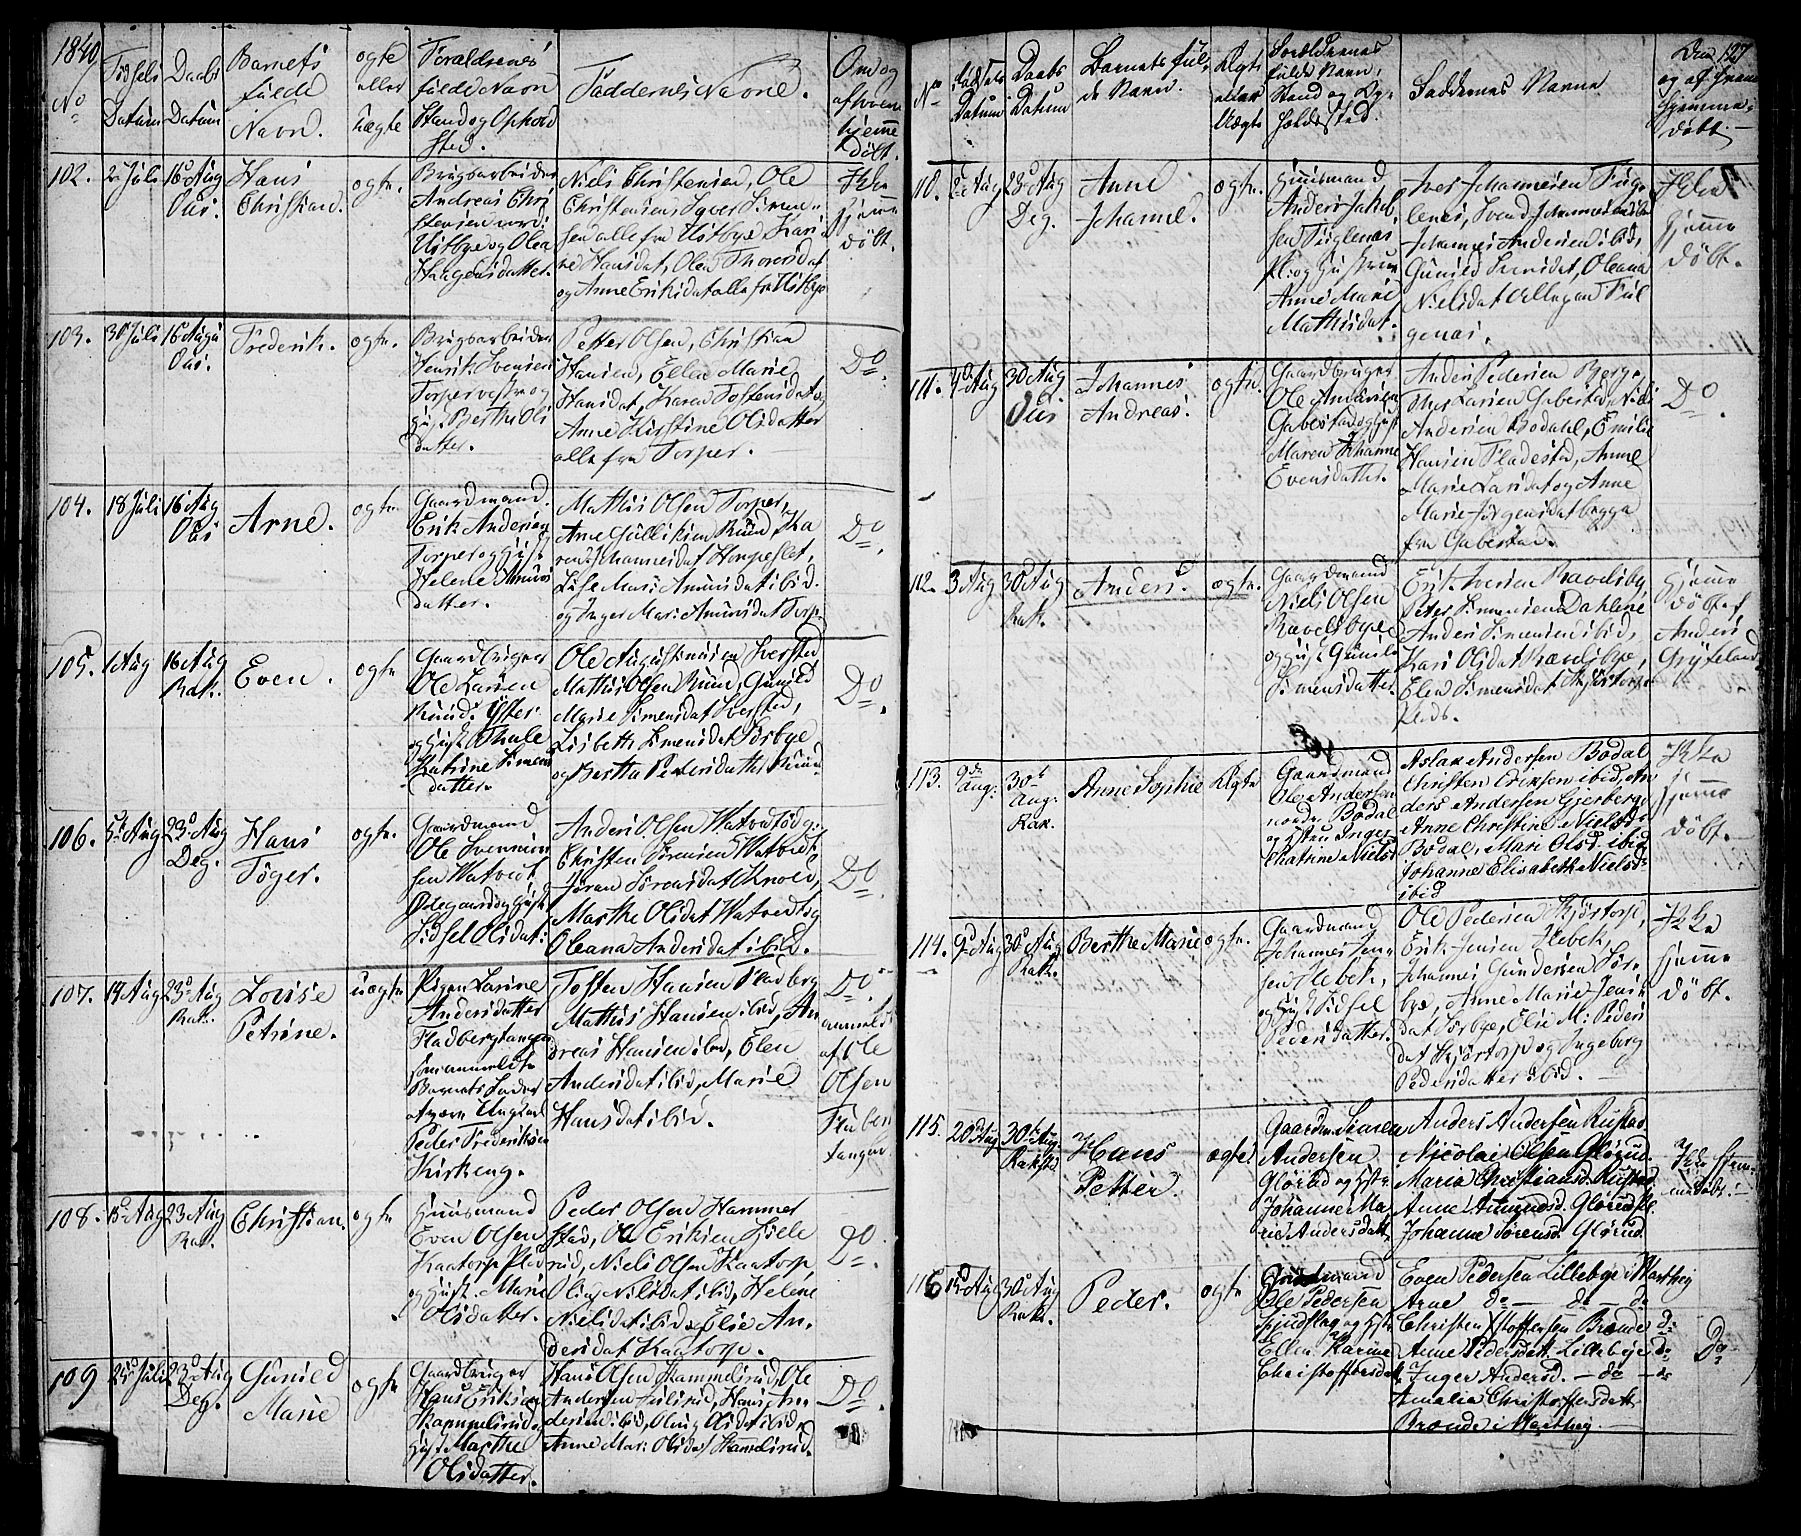 1840
No
Fødsels
Datum
Daabs
Datum
Barnets
fulde
Navn.
ægte
eller
uægte
Foraldrenes
fulde Navn
Stand og Ophold
Sted.
Faddernes Navne.
Om og
af hvem
hjemme
døbt.
102.
2 Juli
16 Aug
Aas.
Hans
Christian.
ægte.
Brugsarbeider
Andreas Chri
stensen
Ustbye og Olea
Haagensdatter.
Niels Christensen, Ole
Christensen, Iver Simen-
sen alle fra Ustbye, Kari
ne Hansdat, Olea Thoresdat
og Anne Eriksdat alle fra Ustbye
Ikke
hjemme
døbt.
103.
30 Juli
16 Aug
Aas.
Frederik.
ægte.
Brugsarbeider
Henrik Svensen
Torper vestre og
Hust. Berthe Ols
datter.
Petter Olsen, Christian
Hansen, Ellen Marie
Hansdat, Karen Tostensdat og
Anne Kirstine Olsdatter
alle fra Torper.
Do
104.
18 Juli
16 Aug
Aas
Arne.
ægte.
Gaardmand
Erik Andersen
Torper og Hust
Helene Amunds
datter.
Mathis Olsen Torper,
Arne Gulliksen Ruud, Ka
ren Johannesdat Hougslet,
Lise Mari Amunsdat ibid.
og Inger Mari Amunsdat Torp.
Do.
105.
1 Aug
16 Aug
Rak.
Even.
ægte
Gaardbruger
Ole Larsen
Ruud
og Hust. Thale
Katrine Simens
datter.
Ole Augustinusen Sversted
Mathis Olsen Ruud, Gunild
Marie Simensdat Sversted,
Lisbeth Simensdat Sørbye
og Bertta Pedersdatter Ruud
Do.
106.
5 Aug
23 Aug
Deg.
Hans
Tøger.
ægte.
Gaardmand
Ole Svennun
sen Watvedt
Ødegaard og Hust
Sidsel Olsdat:
Anders Olsen Watvedtødg:
Christen Sørensen Watvedt,
Jøran Sørensdat Knold,
Marthe Olsdat Watvedtødg
Oleana Andersdat ibid.
Do
107.
14 Aug
23 Aug
Rak.
Lovise
Petrine.
uægte
Pigen Larine
Andersdatter
Fladbergtangen
som anmeldte
Barnets Fader
at være Ungkarl
Peder Frederiksen
Kirkeng.
Tosten Hansen Fladberg
Mathis Hansen ibid, An
dreas Hansen ibid, Elen
Andersdat ibid, Marie
Hansdat ibid.
Do.
anmeldt
af Ole
Olsen
108.
15 Aug
23 Aug
Rak.
Christian.
ægte
Huusmand
Even Olsen
Kaatorp Plds
og Hust. Marie
Olsdatter.
Peder Olsen Hammer
stad, Ole Eriksen Sjøle
rud, Niels Olsen Kaatorp
Olia Nilsdat ibid, Helene
Nielsdat ibid, Elise An-
dersdat Kaatorp.
Do.
109
25 Juli
23 Aug
Deg.
Gunild
Marie
ægte
Gaardbruger
Hans Eriksen
Skammelsrud og
Hust Marthe
Olsdatter.
Hans Olsen Skammelsrud, Ole
Andersen Juulsrud, Hans An-
dersen ibid, Olia Olsdat ibid,
Anne Mari Olsdat Skammelsrud.
Do.
127
No
Fødsels
Datum
Daabs
Datum
Barnets ful-
de Navn.
Ægte
eller
Uægte
Forældrenes
fulde Navn,
Stand og Op-
holdssted.
Faddernes Navne
Om
og af hvem
hjemme-
døbt.
110.
5 Aug
23 Aug
Deg.
Anne
Johanne.
ægte.
Huusmand
Anders Jakob
sen Fuglenæs
pl. og Hustrue
Anne Marie
Mathisdat.
Iver Johannesen Fug-
lenes, Svend Johannesen ibid
Johannes Andersen ibid,
Gunild Iversdat, Oleana
Nielsdat
Ikke
hjemme
døbt.
111.
4 Aug
30 Aug
Aas
Johannes
Andreas.
ægte.
Gaardbruger
Ole Andersen
Gabestad og Hust
Maren Johanne
Evensdatter.
Anders Pedersen Berge,
Ole Larsen Gabestad, Niels
Andersen Bodahl, Emilie
Hansen Fladestad, Anne
Marie Larsdat og Anne
Marie Jørgensdat begge
fra Gabestad.
Do.
112.
3 Aug
30 Aug
Rak.
Anders.
ægte.
Gaardmand
Niels Olsen
Ravelsbye
og Hust Gunild
Simensdatter.
Erik Iversen Ravelsby,
Peter Simensen Dahlene
Anders Simensen ibid,
Kari Olsdat Ravelsbye,
Elen Simensdat Skjøstorps
Plds.
Hjemme
døbt af
Anders
Gryteland
113.
9de
Aug:
30te
Aug:
Rak.
Anne Sophie
Ægte
Gaardmand
Ole Andersen
nordr. Bodal
og Hstru Inger
Chatrine Nielsd
Aslak Andersen Bodal
Christen Eriksen ibid, An
ders Andersen Gjerberg
Anne Christine Nielsd
Bodal, Mari Olsd. ibid
Johanne Elisabeth Nielsd
ibid
Ikke
hjemme
døbt.
114.
9 Aug
30 Aug
Rak.
Berthe Marie
ægte.
Gaardmand
Johannes Jen-
sen Ilebek,
og Hust Sidsel
Pedersdatter.
Ole Pedersen Skjøstorp,
Erik Jensen Ilebek,
Johannes Gundersen Sør-
bye, Anne Marie Jens-
dat Sørbye, Elise M. Peders
dat Skjøstorp og Ingeborg
Pedersdatter ibid.
Ikke
hjemme
døbt.
115.
20 Aug
30te Aug
Rakst
Hans
Petter.
ægte.
Gaardm. Simen
Andersen
Glørud og Hstr
Johanne Ma-
rie Andersdatt.
Anders Andersen Rustad
Nicolai Olsen Glørud.
Maria Christiansd. Rustad.
Anne Amundsd. Glørud pl.
Johanne Sørensd. Glørud.
Ikke hjem-
medøbt.
116
15 Aug
30 Aug
Rak.
Peder.
ægte
Ole Pedersen
og Hstr
Ellen Karine
Christoffersdatt
Even Pedersen Lillebye i Waatvig
Arne do — do — do
Christen Christoffersen Brønde do
Anne Pedersdatt. Lillebye do
Inger Andersd. — do — do
Amalia Christoffersdatt.
Brønde i Waatvig.
Do